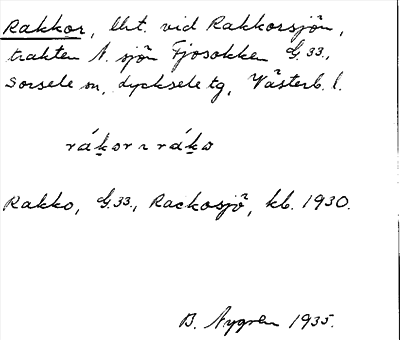 Rakkor, lht. vid Rakkorsjön,
trakten N. sjön Fjosokken G.33.,
Sorsele sn, Lycksele tg, Västerb. l.
råkor ~ råko
Rakko, G.33., Rackosjö, kb. 1930.
B. Nygren 1935.